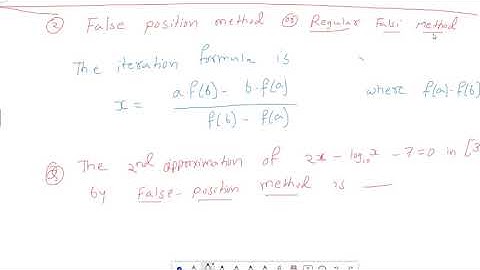 ② False position method (or) Regular Falsi method
The iteration formula is
x = a f(b) - b. f(a) / f(b) - f(a) where f(a).f(b)
Q The 2nd approximation of 2x - log₁₀x - 7 = 0 in [3
by False-position method is __